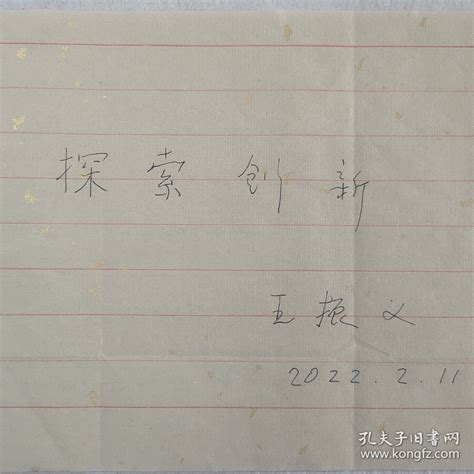 探索创新
王振义
2022.2.11
孔夫子旧书网
www.kongfz.com